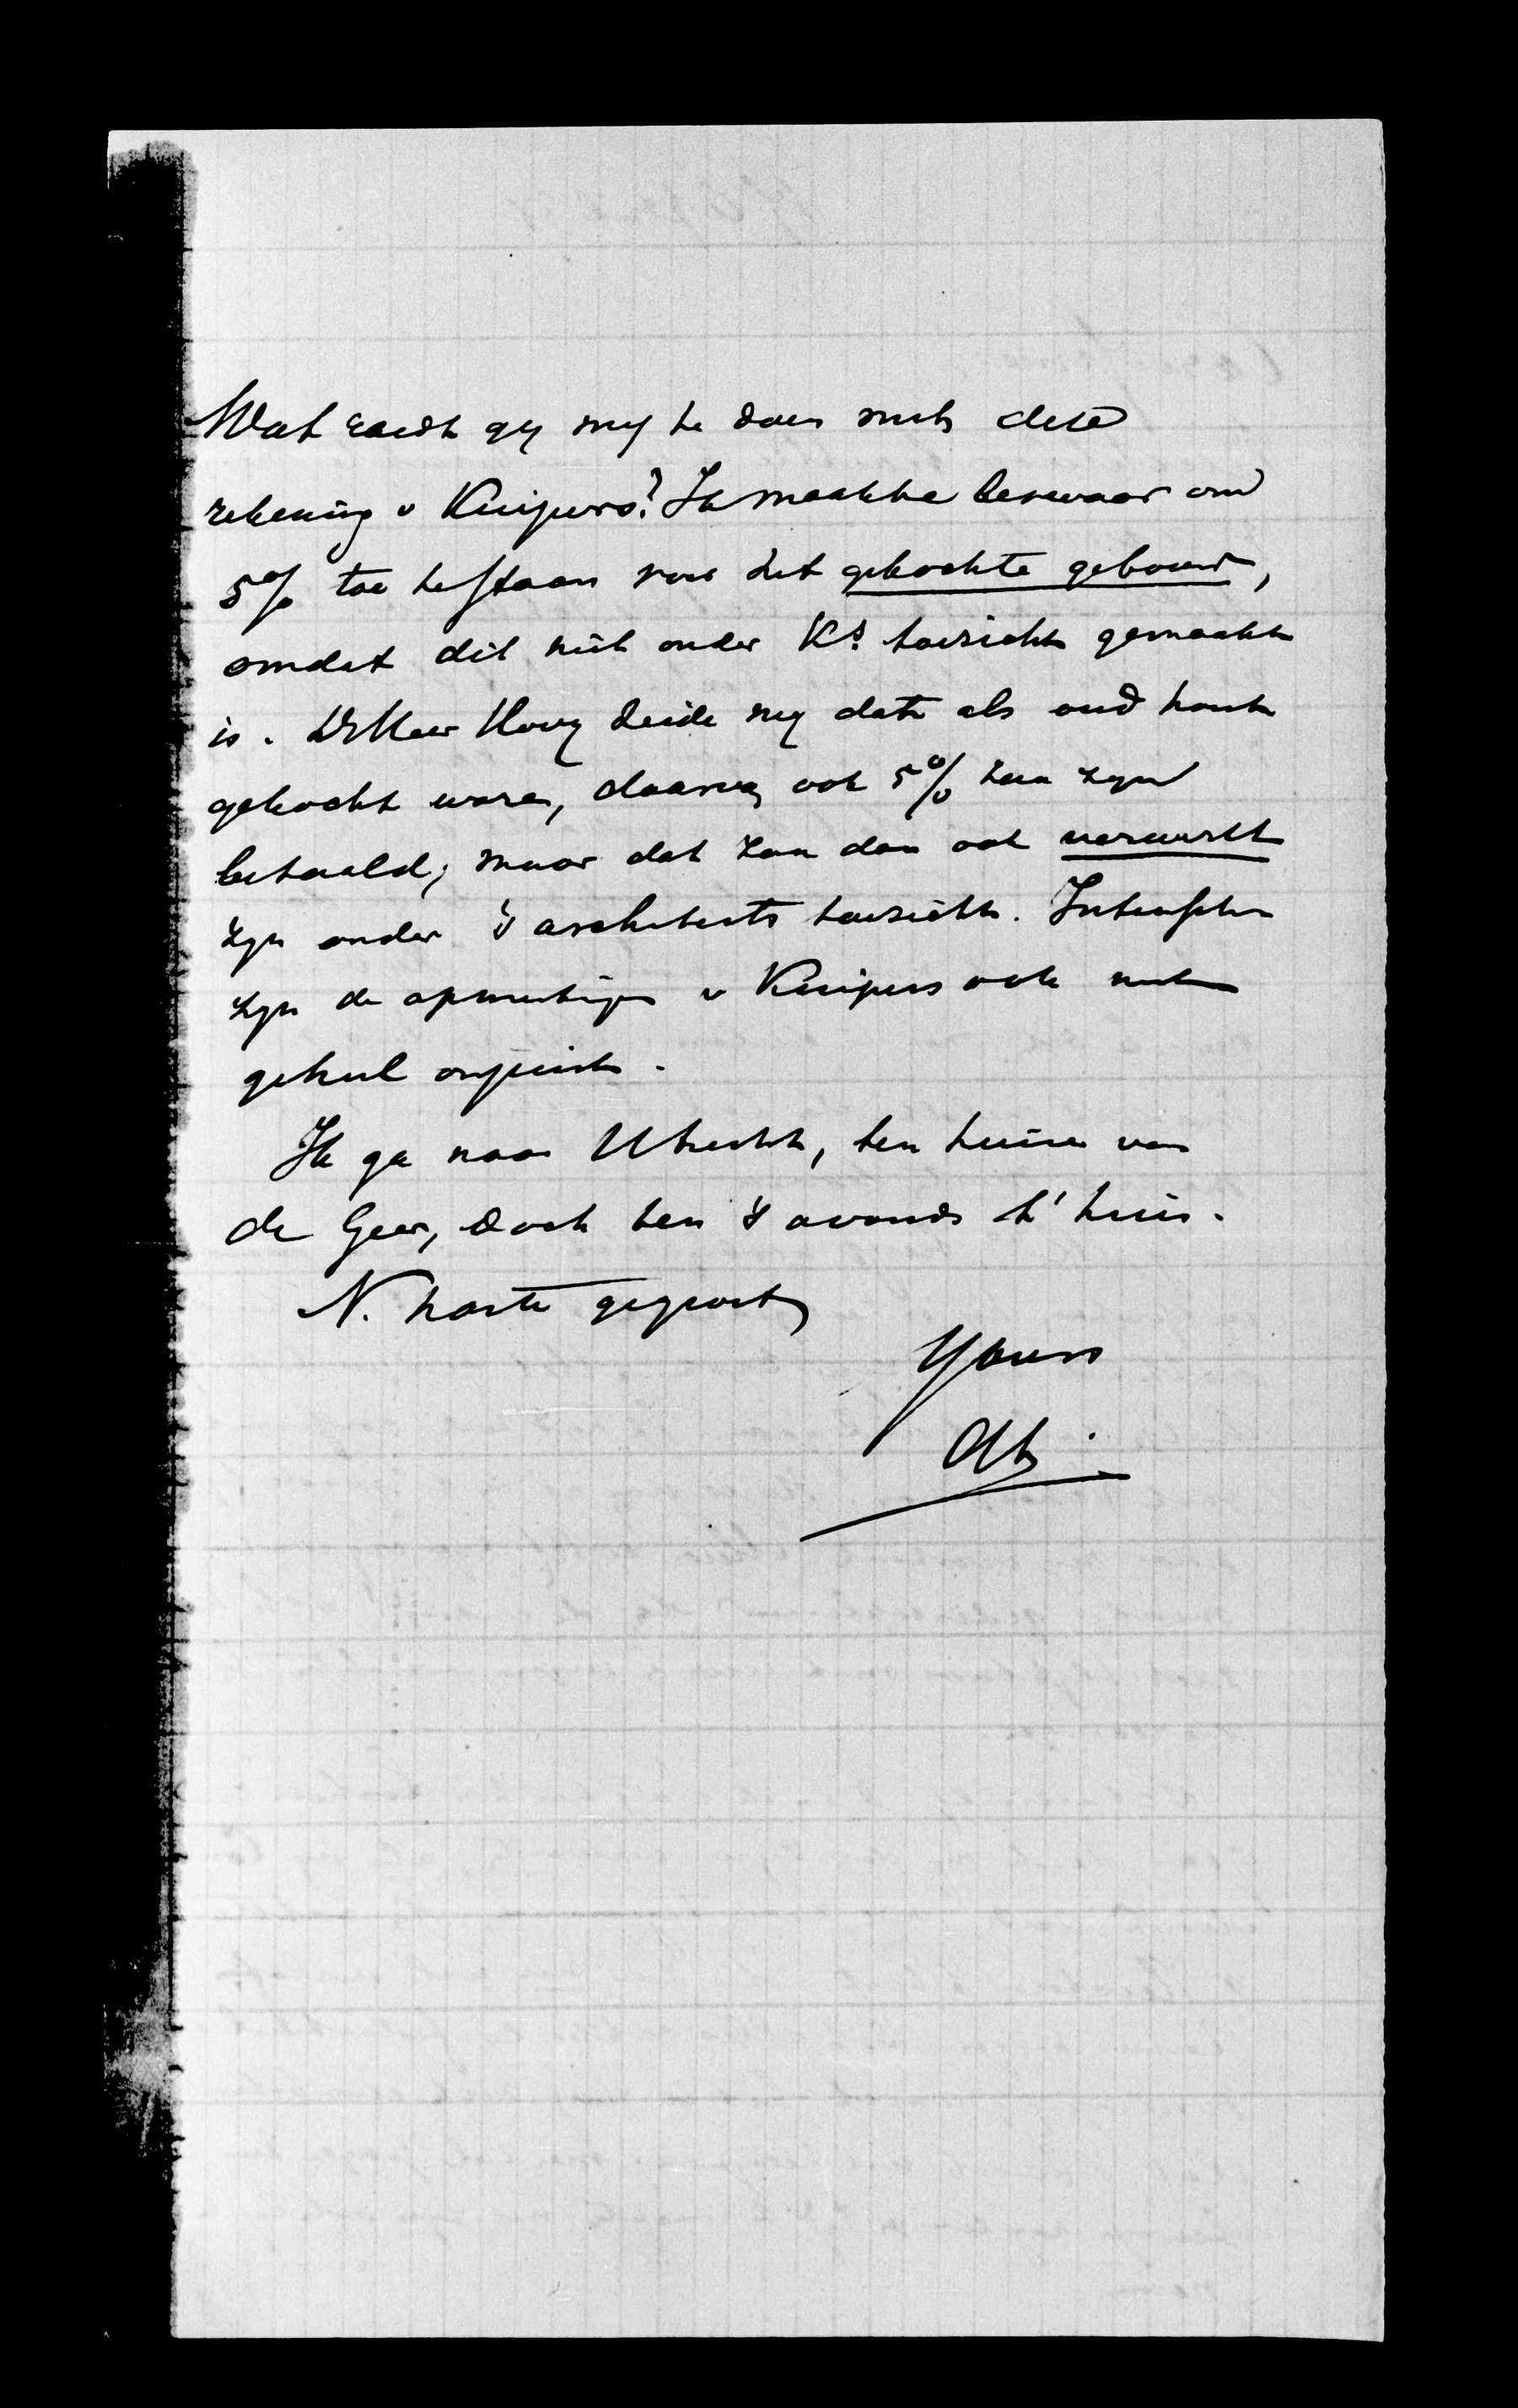 Wat raadt gij mij te doen met deze
rekening v Kuipers? Ik maakte bezwaar om
5% toe te staan voor het gekochte gebouw,
omdat dit niet onder K's toezicht gemaakt
is. De Heer Hovy zeide mij dat als oud hout
gekocht ware, daarvan ook 5% zou zijn
betaald; maar dat zou dan ook verwerkt
zijn onder 's architects toezicht. Intusschen
zijn de opmerkingen v Kuipers ook niet
geheel onjuist.
Ik ga naar Utrecht, ten huize van
de Geer, doch ben 's avonds t'huis.
N. harte gegroet
Yours